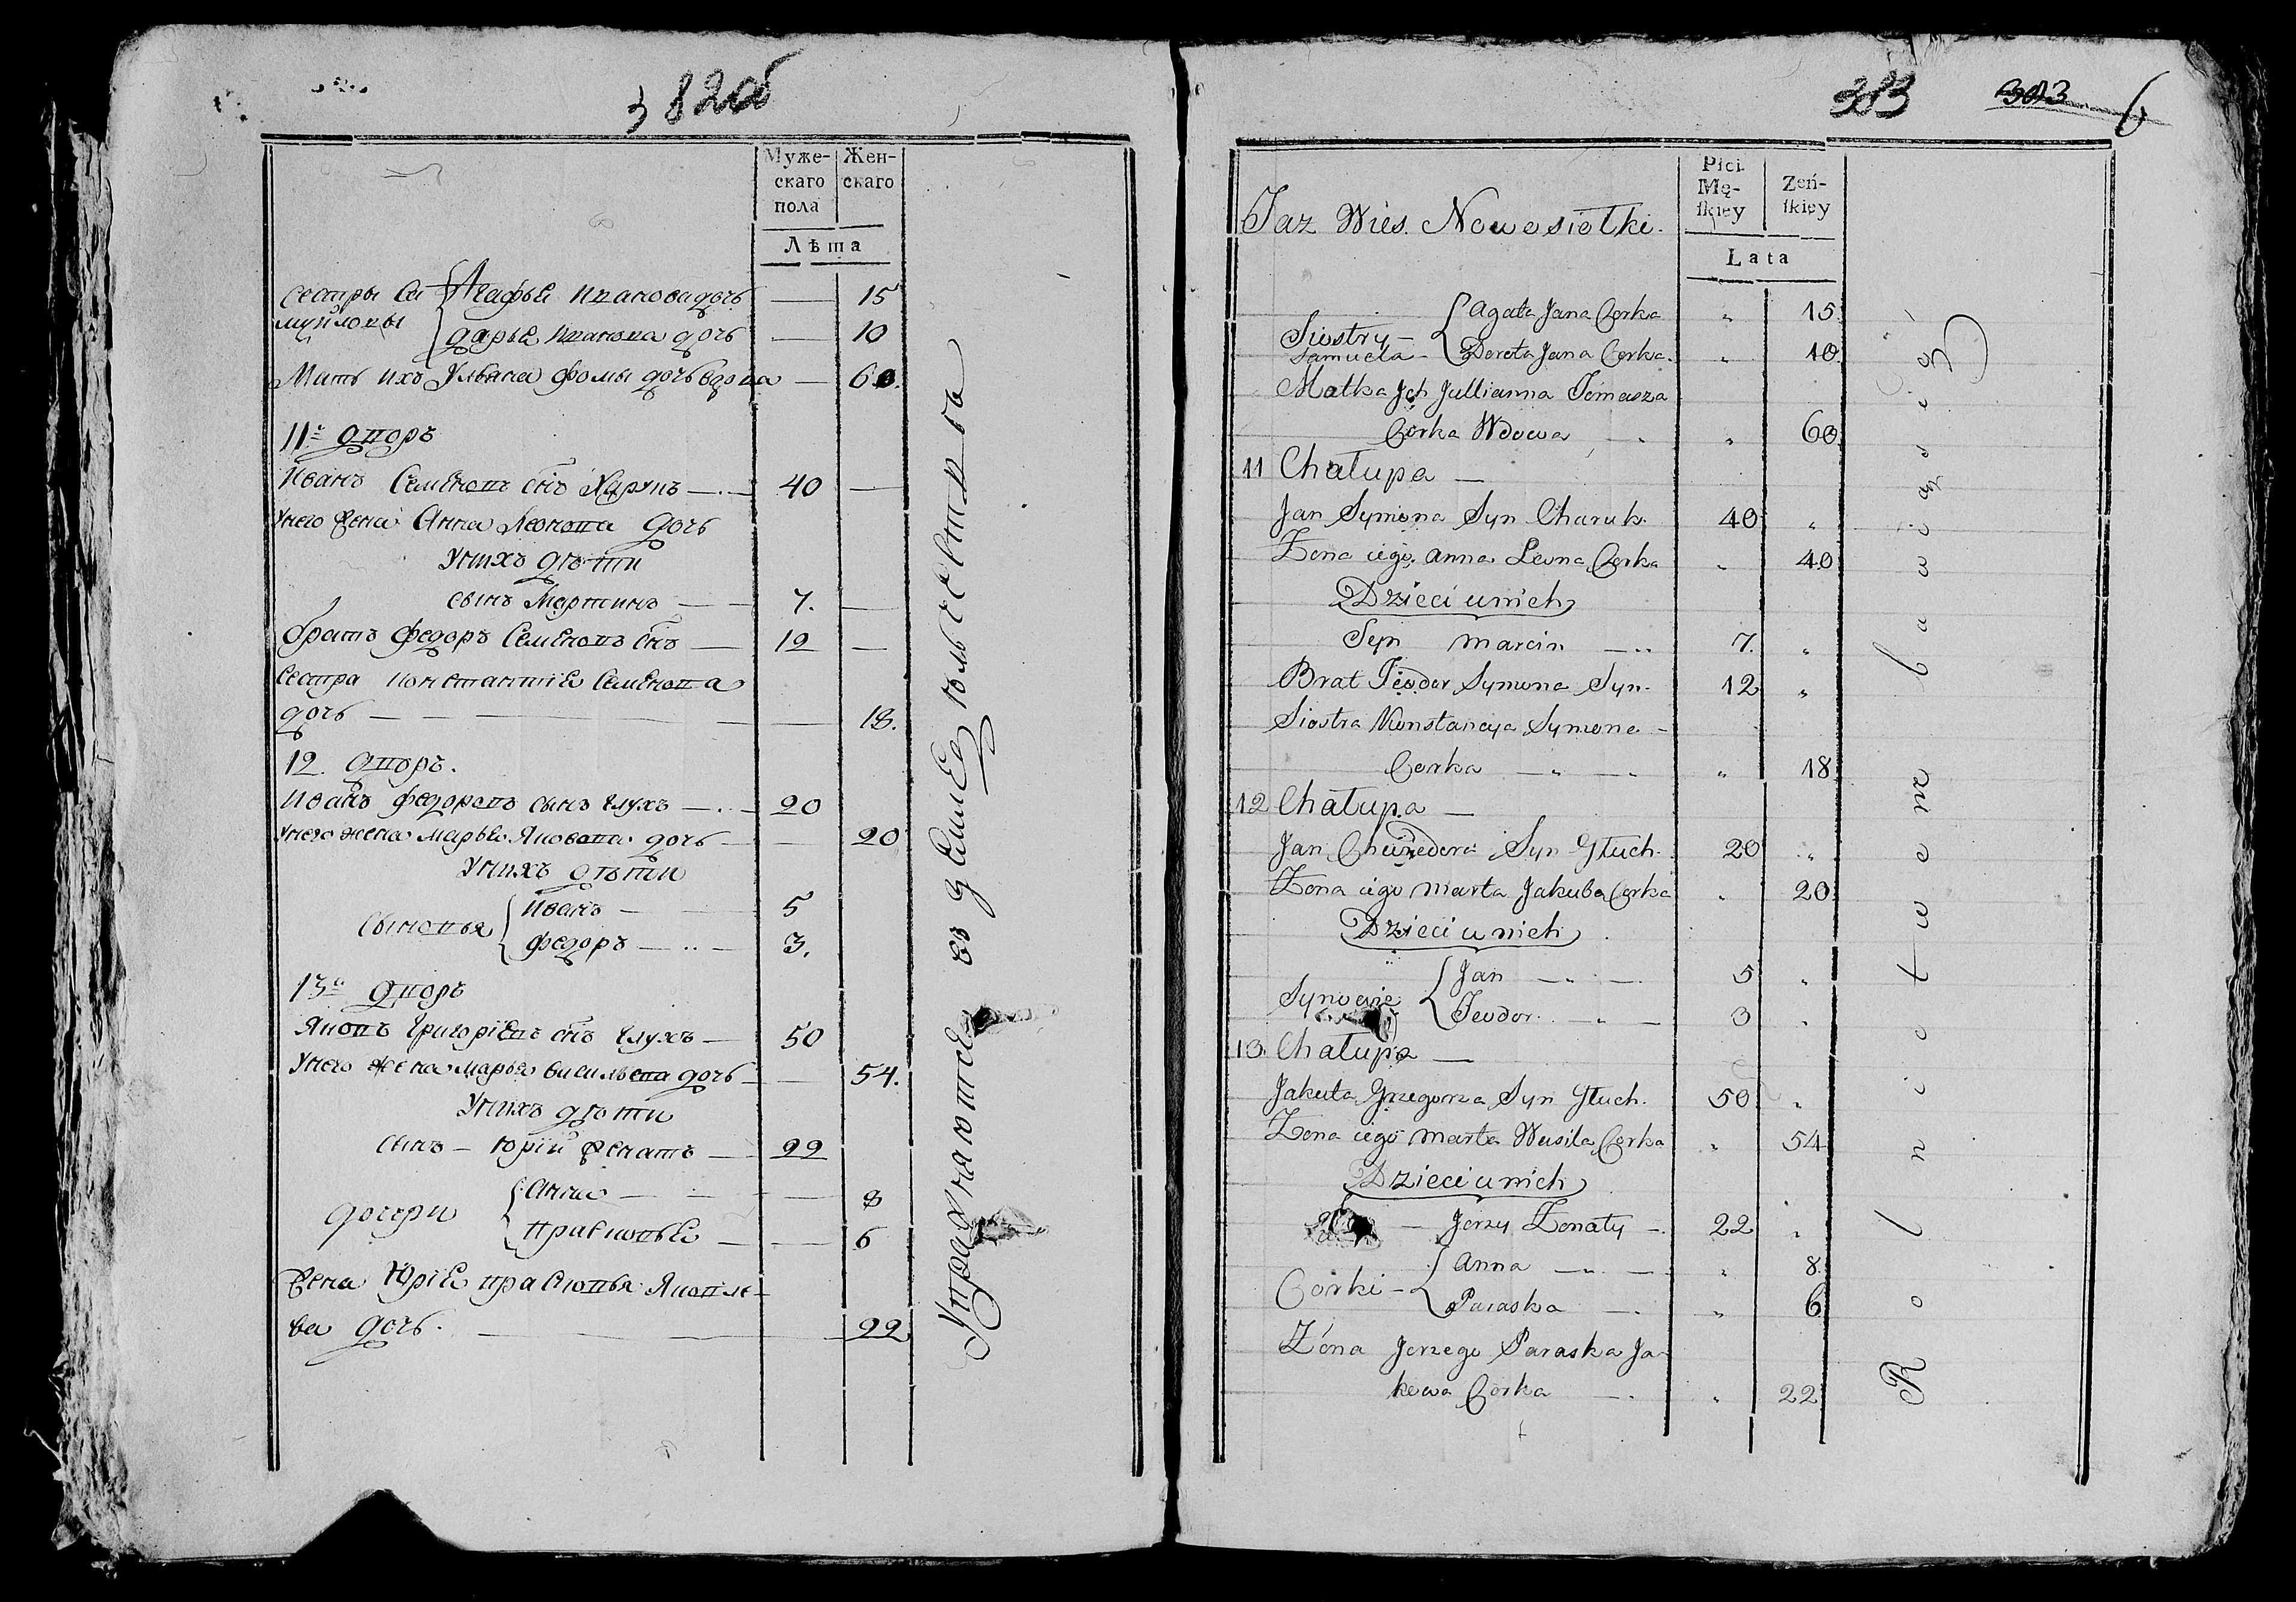 382об
Муже-
скаго
пола
Жен-
скаго
Лѣта
сестры Са
муйловы
Агафья Иванова дочь — 15
Дарья Иванова дочь — 10
Мать ихъ Ульяна Фомы дочь вдова — 60.
11й дворъ
Иванъ Семеновъ снъ Харукъ — 40 —
У него жена Анна Леонова дочь
У нихъ дѣти
сынъ Мартинъ — 7. —
братъ Федоръ Семеновъ снъ — 12 —
Сестра Константія Семенова
дочь — 18.
12. дворъ.
Иванъ Федоровъ сынъ Глухъ — 20
У него жена Марья Яковова дочь — 20
У нихъ дѣти
Сыновья
Иванъ — 5
Федоръ — 3.
13й дворъ
Яковъ Григоріевъ снъ Глухъ — 50
У него жена Марья Васильева дочь — 54.
У нихъ дѣти
сынъ — Юрій женатъ — 22
дочери
Анна — 8
Прасковья — 6
Жена Юрія Прасковья Яковле-
ва дочь. — 22
Упражняются въ земледѣльчествѣ
383 383 6
Jaz Wieś. Nowosiołki.
Płci.
Mę-
ſkiey
Żeń-
ſkiey
Lata
Siostry —
Samuela —
Agata Jana Corka „ 15
Dorota Jana Corka. „ 10
Matka Jch Jullianna Tomasza
Córka Wdowa — „ 60
11 Chałupa —
Jan Symona Syn Charuk. 40 „
Zona iego Anna Lewna Corka „ 40
Dzieci u nich
Syn Marcin — 7. „
Brat Teodor Symona Syn. 12 „
Siostra Konstancya Symona –
Corka — „ 18
12 Chałupa —
Jan Chwiedora Syn Głuch. 20 „
Zona iego Marta Jakuba Corka „ 20
Dzieci u nich
Synowie
Jan — 5 „
Teodor. — 3 „
13 Chałupa —
Jakuta Grzegorza Syn Głuch. 50 „
Zona iego Marta Wasila Corka „ 54
Dzieci u nich
— Jerzy Zonaty — 22 „
Corki —
Anna — „ 8
Paraska — „ 6
Zona Jerzego Paraska Ja-
kowa Corka — „ 22
Rolnictwem bawią się